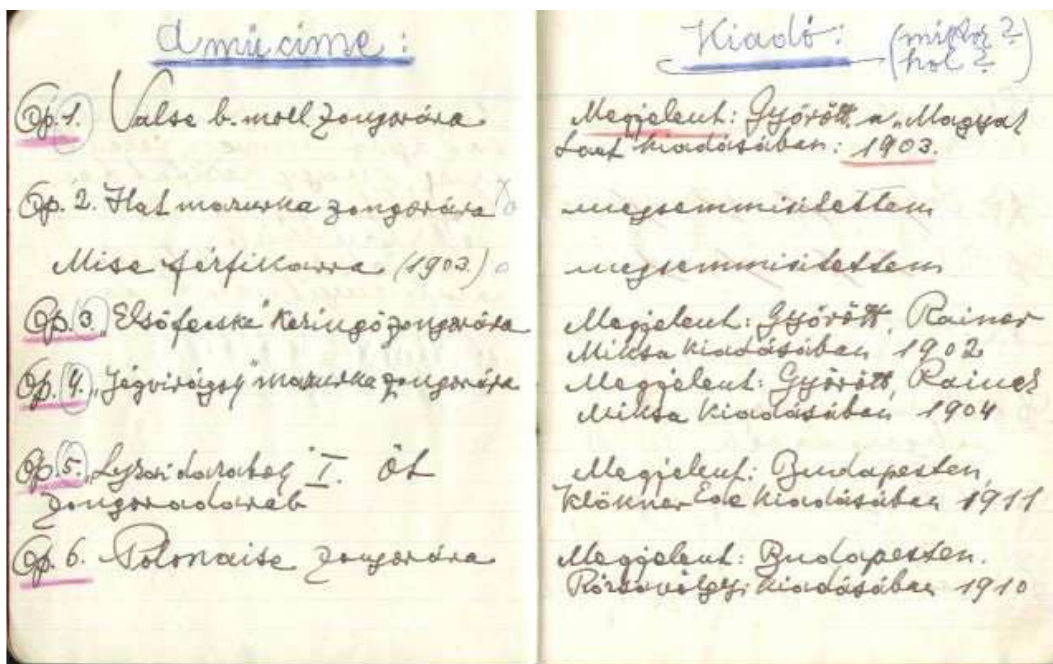 A mű címe:
Op. 1. Valse b. moll zongorára
Op. 2. Hat mazurka zongorára
Mise férfikarra (1903.)
Op. 3. „Első fecske" Keringő zongorára
Op. 4. „Jégvirágok" mazurka zongorára
Op. 5. „Lyrai darabok" I. öt
zongoradarab
Op. 6. Polonaise zongorára
Kiadó: (mikor?
hol?)
Megjelent: Győrött, a „Magyar
Lant" kiadásában: 1903.
megsemmisítettem
megsemmisítettem
Megjelent: Győrött, Rainer
Miksa kiadásában 1902
Megjelent: Győrött, Rainer
Miksa kiadásában 1904
Megjelent: Budapesten,
Klökner Ede kiadásában 1911
Megjelent: Budapesten.
Rózsavölgyi kiadásában 1910